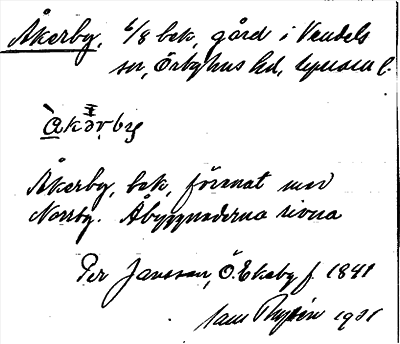 Åkerby, 6/8 bek, gård i Vendels
sn, Örbyhus hd, Uppsala l.
àkǝrby
Åkerby, bek, förenat med
Norrby. Åbyggnaderna rivna
Per Jansson, Ö. Ekeby f. 1841
1931